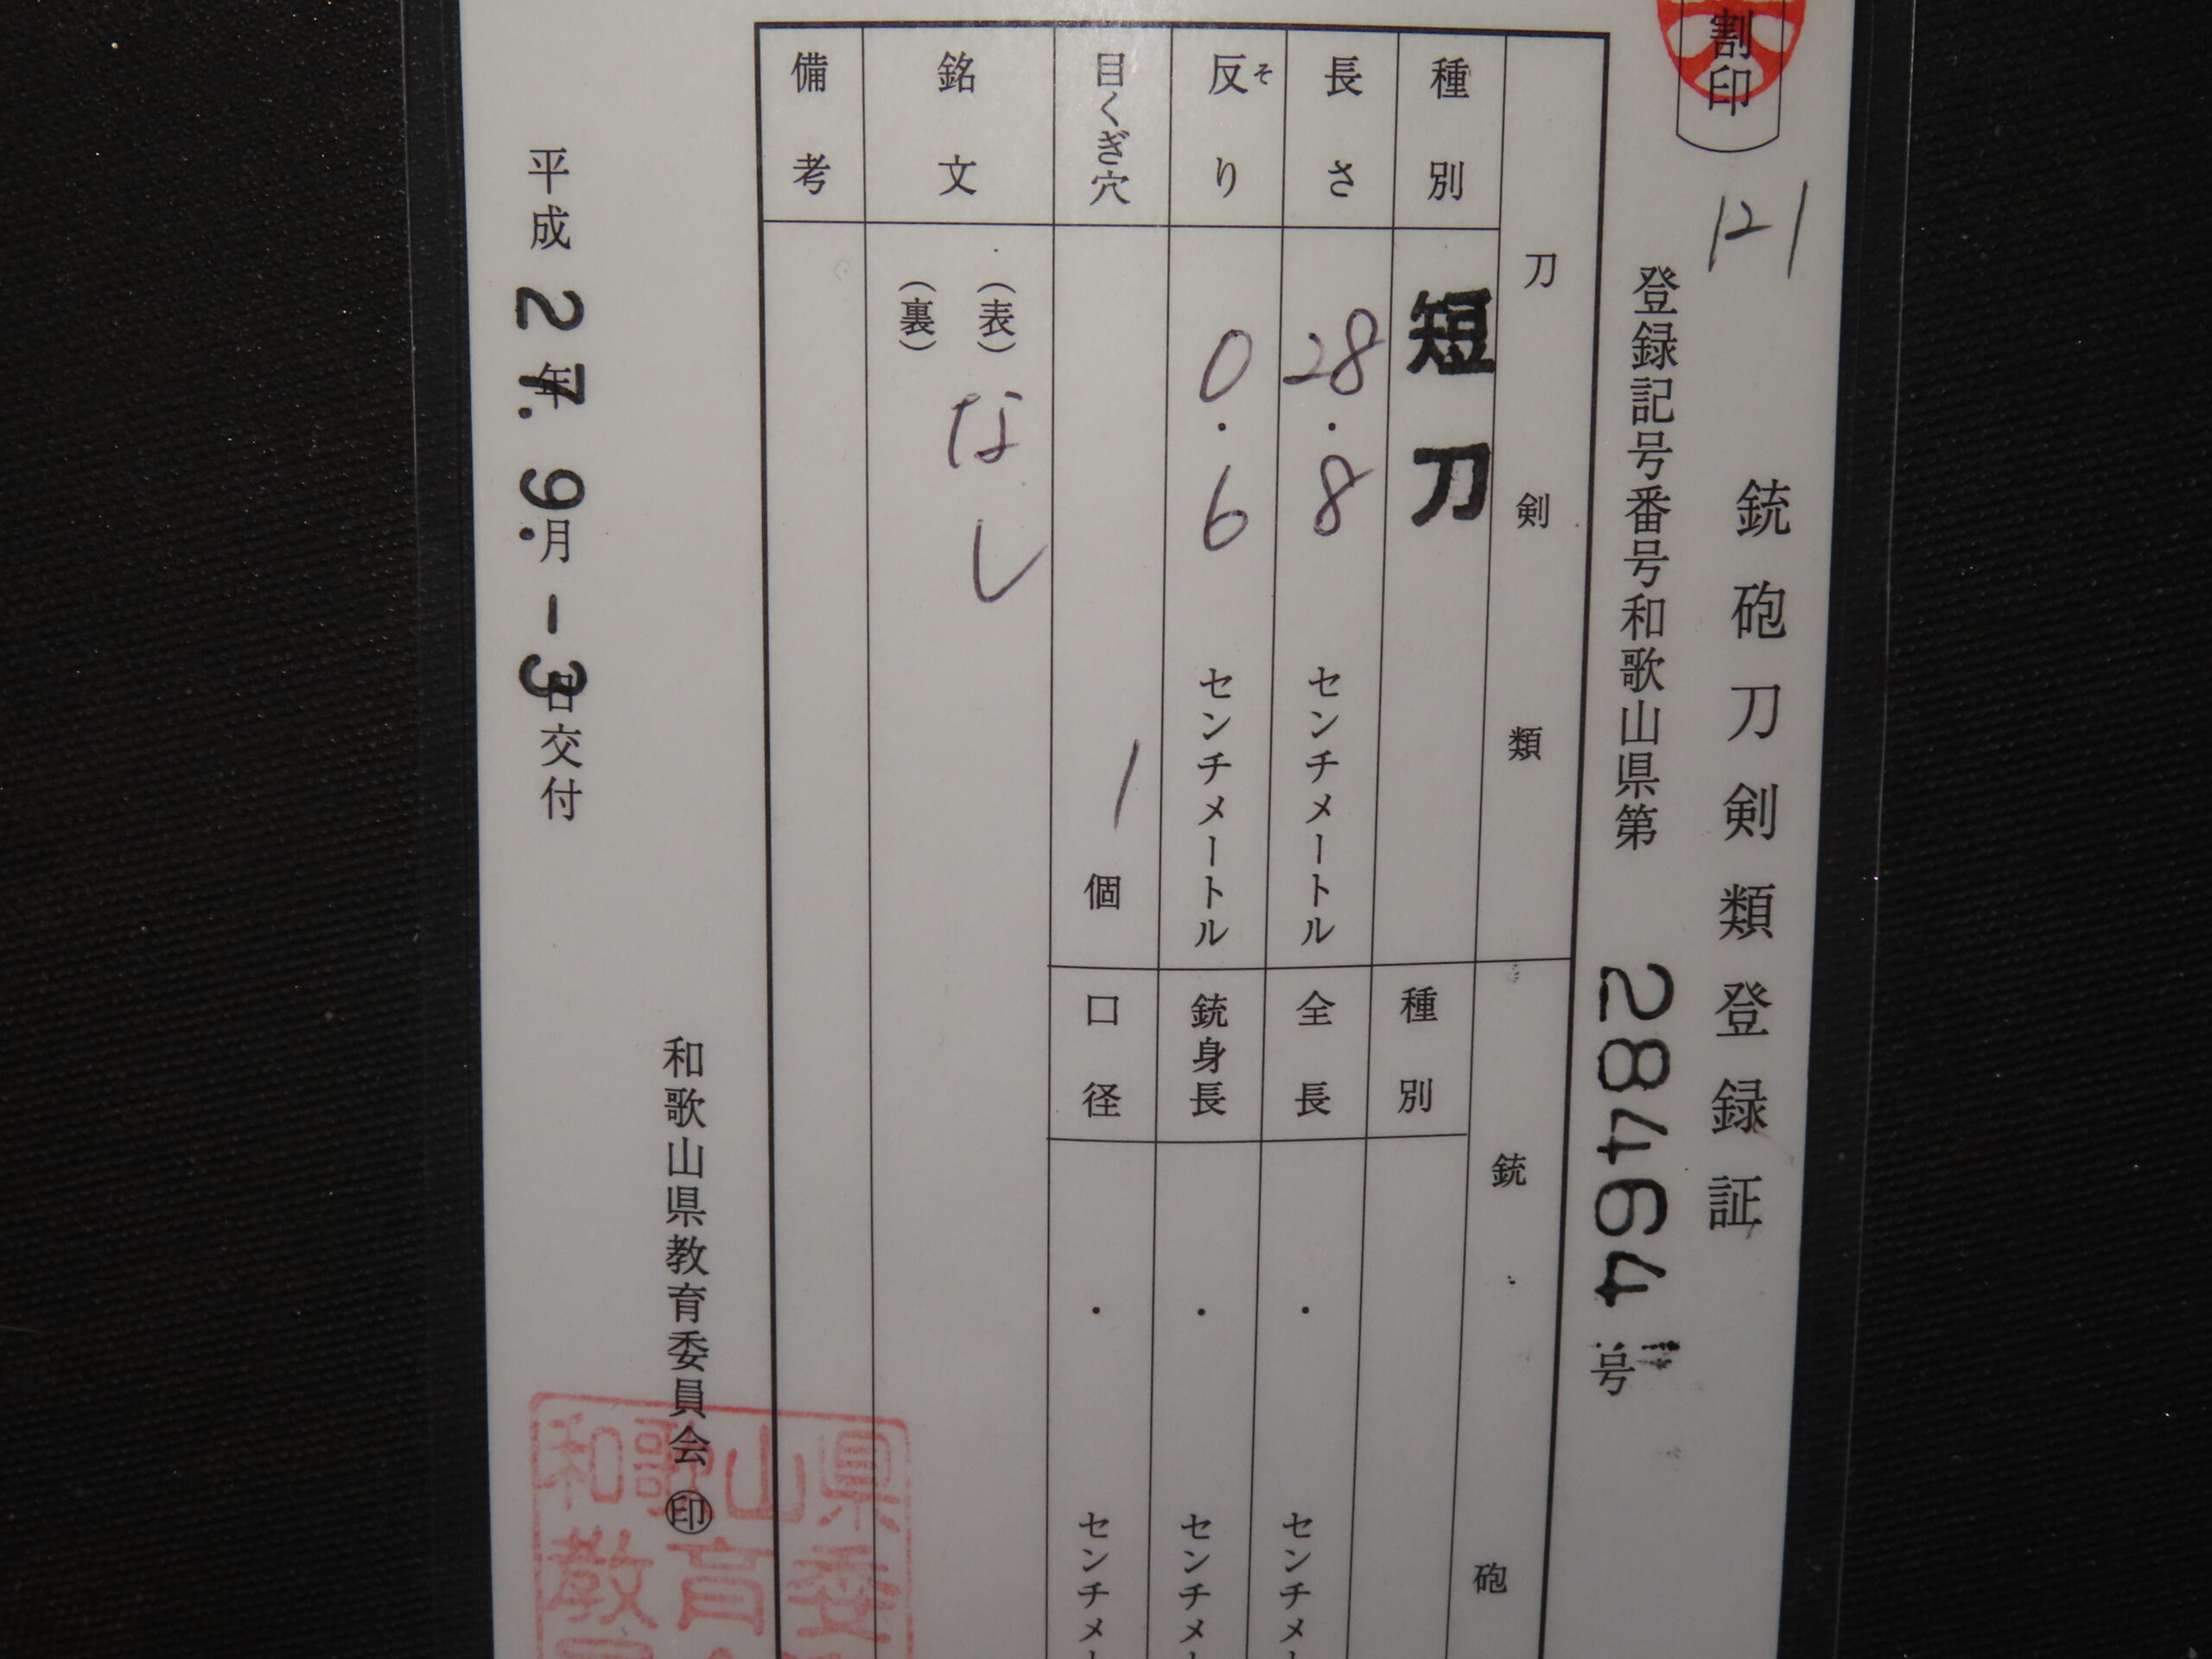 割印
121
銃砲刀剣類登録証
登録記号番号和歌山県第 28464 号
刀剣類
種別 短刀
長さ 28.8 センチメートル
反り そ 0.6 センチメートル
目くぎ穴 1 個
銘文 (表) なし
(裏)
備考
銃砲
種別
全長 . センチメ
銃身長 . センチメ
口径 . センチメ
和歌山県教育委員会 ㊞
平成 27.年 9.月 -3日交付
和歌山県
教育委